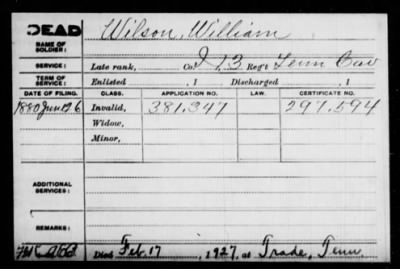 DEAD
NAME OF SOLDIER: Wilson, William
SERVICE: Late rank, Co. I, 13 Reg't Tenn Cav
TERM OF SERVICE: Enlisted , 1 Discharged , 1
DATE OF FILING. CLASS. APPLICATION NO. LAW. CERTIFICATE NO.
1880 June 26 Invalid, 381,347 297,594
Widow,
Minor,
ADDITIONAL SERVICES:
REMARKS:
Died Feb. 17, 1927, at Trade, Tenn